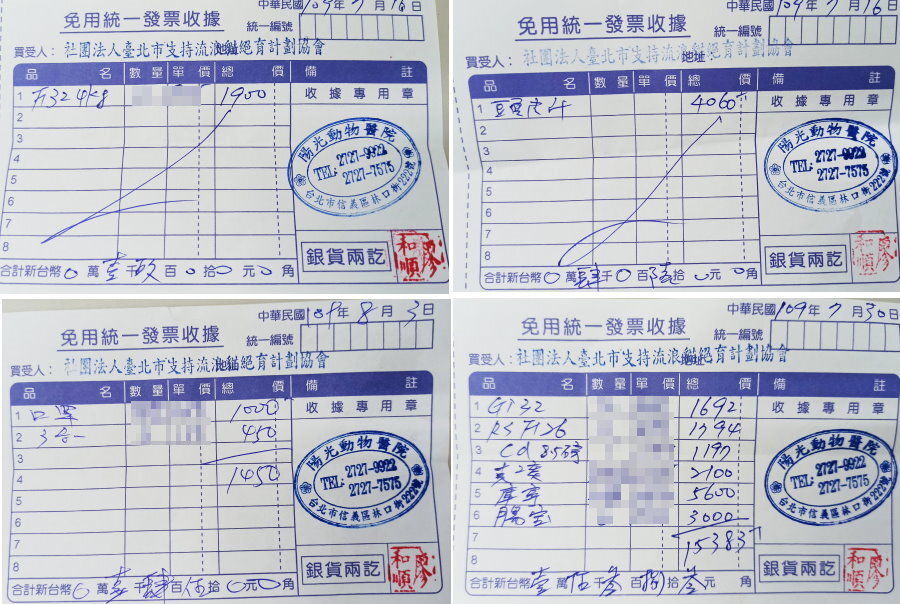 中華民國109年7月16日
免用統一發票收據
統一編號
買受人：社團法人臺北市支持流浪貓絕育計劃協會
地址
品名 數量 單價 總價 備註
1 Fi32 4kg 1900 收據專用章
2
3
4
5
6
7
8
陽光動物醫院
TEL: 2727-9922
2727-7575
台北市信義區林口街222號
銀貨兩訖
廖和順
合計新台幣0萬壹千玖百0拾0元0角
中華民國109年7月16日
免用統一發票收據
統一編號
買受人：社團法人臺北市支持流浪貓絕育計劃協會
地址
品名 數量 單價 總價 備註
1 4060 收據專用章
2
3
4
5
6
7
8
陽光動物醫院
TEL: 2727-9922
2727-7575
台北市信義區林口街222號
銀貨兩訖
廖和順
合計新台幣0萬肆千0百陸拾0元0角
中華民國109年8月3日
免用統一發票收據
統一編號
買受人：社團法人臺北市支持流浪貓絕育計劃協會
地址
品名 數量 單價 總價 備註
1 1000 收據專用章
2 三合一 450
3
4 1450
5
6
7
8
陽光動物醫院
TEL: 2727-9922
2727-7575
台北市信義區林口街222號
銀貨兩訖
廖和順
合計新台幣0萬壹千肆百伍拾0元0角
中華民國109年7月30日
免用統一發票收據
統一編號
買受人：社團法人臺北市支持流浪貓絕育計劃協會
地址
品名 數量 單價 總價 備註
1 GI32 1692 收據專用章
2 RS Fi26 1794
3 Cd 8.5磅 1197
4 2100
5 5600
6 3000
7 15383
8
陽光動物醫院
TEL: 2727-9922
2727-7575
台北市信義區林口街222號
銀貨兩訖
廖和順
合計新台幣壹萬伍千叁百捌拾叁元角